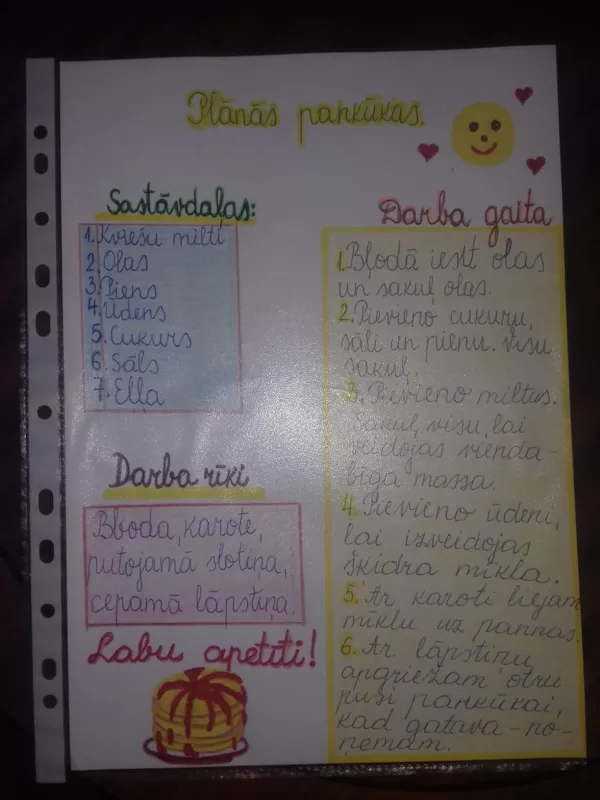 Plānās pankūkas.
Sastāvdaļas:
1. Kviešu milti
2. Olas
3. Piens
4. Ūdens
5. Cukurs
6. Sāls
7. Eļļa
Darba rīki
Bļoda, karote,
putojamā slotiņa,
cepamā lāpstiņa.
Labu apetīti!
Darba gaita
1. Bļodā iesit olas
un sakuļ olas.
2. Pievieno cukuru,
sāli un pienu. Visu
sakuļ.
3. Pievieno miltus.
Sakuļ visu, lai
veidojas vienda-
bīga massa.
4. Pievieno ūdeni,
lai izveidojas
šķidra mīkla.
5. Ar karoti liejam
mīklu uz pannas.
6. Ar lāpstiņu
apgriežam otru
pusi pankūkai,
kad gatava - no-
ņemam.